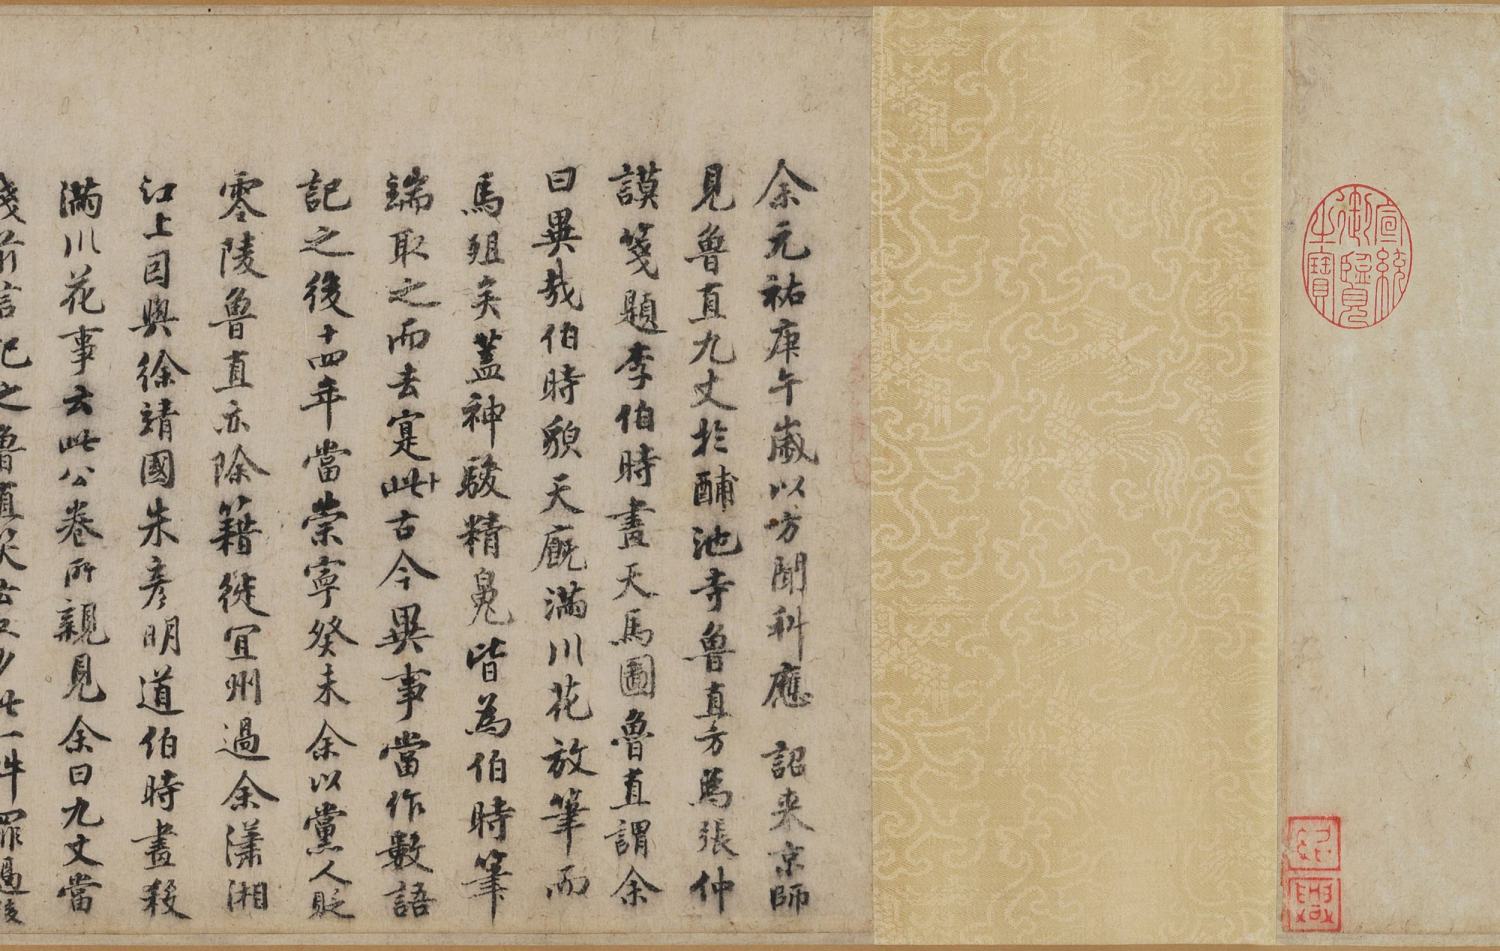 宣統
御覽
之寶
紹興
余元祐庚午歲以方聞科應 詔来京師
見魯直九丈於酺池寺魯直方為張仲
謨箋題李伯時畫天馬圖魯直謂余
曰異哉伯時貌天廐滿川花放筆而
馬殂矣蓋神駿精魄皆為伯時筆
端取之而去寔此古今異事當作數語
記之後十四年當崇寧癸未余以黨人貶
零陵魯直亦除籍徙宜州過余瀟湘
江上因與徐靖國朱彥明道伯時畫殺
滿川花事云此公卷所親見余曰九丈當
踐前言記之魯直笑云只少此一件罪過後